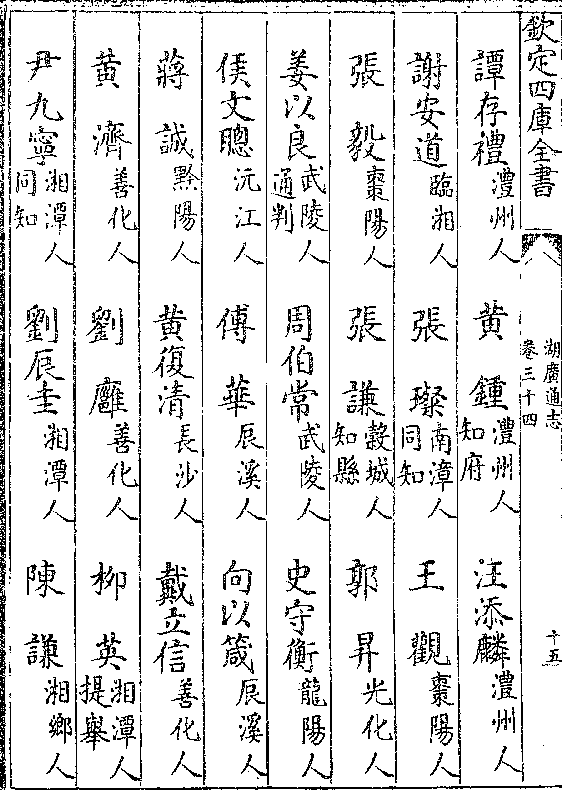 欽定四庫全書
湖廣通志
卷三十四
十五
譚存禮 澧州人 黃鍾 澧州人知府 汪添麟 澧州人
謝安道 臨湘人 張璨 南漳人同知 王觀 棗陽人
張毅 棗陽人 張謙 穀城人知縣 郭昇 光化人
姜以良 武陵人通判 周伯常 武陵人 史守衡 龍陽人
侯文聰 沅江人 傅華 辰溪人 向以箴 辰溪人
蔣誠 黔陽人 黃復清 長沙人 戴立信 善化人
黃濟 善化人 劉龐 善化人 柳英 湘潭人提舉
尹九寧 湘潭人同知 劉辰圭 湘潭人 陳謙 湘鄉人